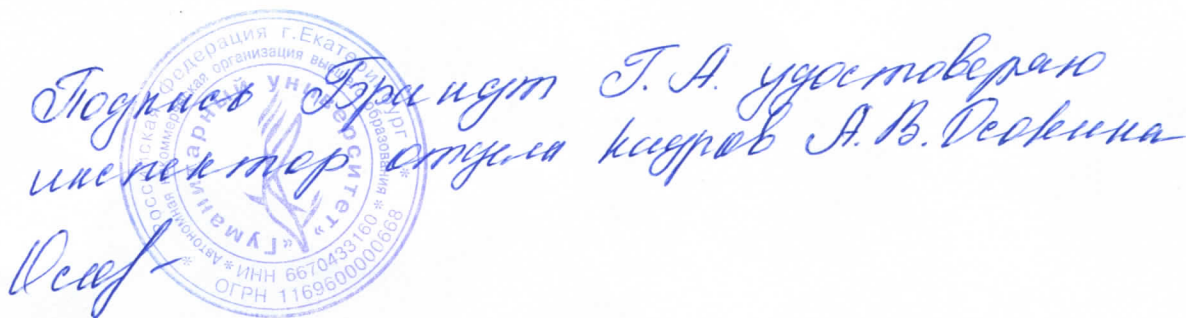 Подпись Брандт Г. А. удостоверяю
инспектор отдела кадров А. В. Осокина
Российская Федерация г. Екатеринбург
Автономная некоммерческая организация высшего образования
«Гуманитарный университет»
ИНН 6670433160
ОГРН 1169600000668